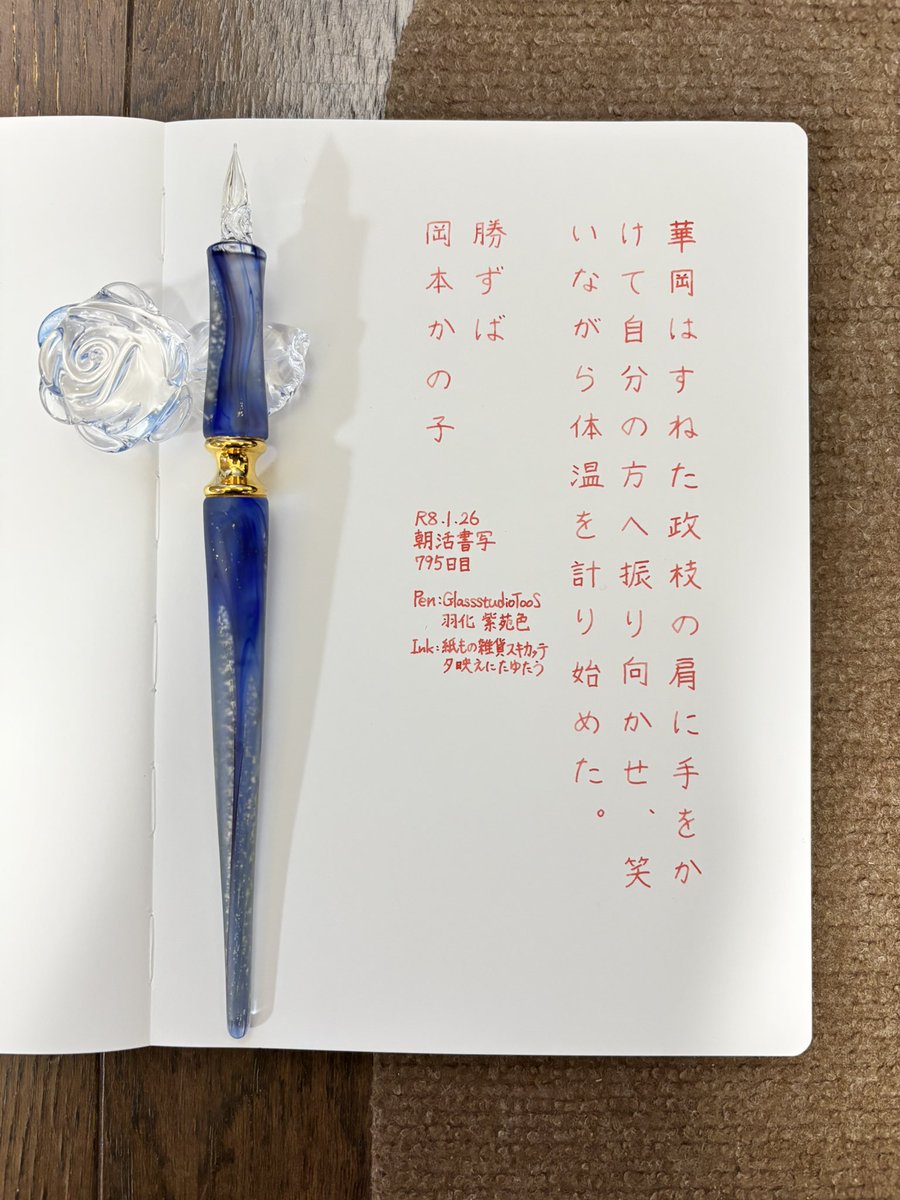 華岡はすねた政枝の肩に手をか
けて自分の方へ振り向かせ、笑
いながら体温を計り始めた。
勝ずば
岡本かの子
R8.1.26
朝活書写
795日目
Pen:GlassstudioTooS
羽化 紫苑色
Ink:紙もの雑貨スキカッテ
夕映えにたゆたう